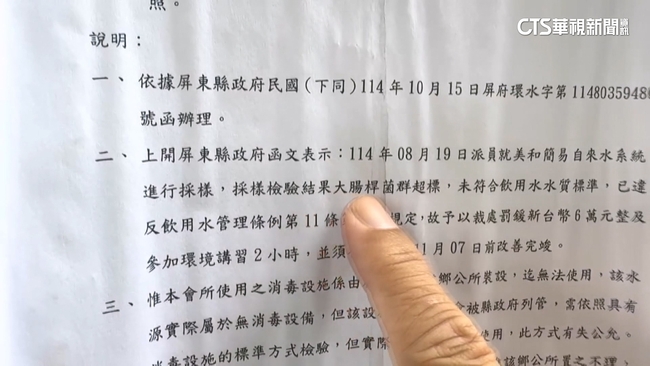 照。
CTS華視新聞資訊
說明：
一、依據屏東縣政府民國(下同)114年10月15日屏府環水字第1148035948
號函辦理。
二、上開屏東縣政府函文表示：114年08月19日派員就美和簡易自來水系統
進行採樣，採樣檢驗結果大腸桿菌群超標，未符合飲用水水質標準，已違
反飲用水管理條例第11條 規定，故予以裁處罰鍰新台幣6萬元整及
參加環境講習2小時，並須 月07日前改善完竣。
三、惟本會所使用之消毒設施係由 鄉公所裝設，迄無法使用，該水
源實際屬於無消毒設備，但該設 被縣政府列管，需依照具有
消毒設施的標準方式檢驗，但實際 使用，此方式有失公允。
該鄉公所置之不理，